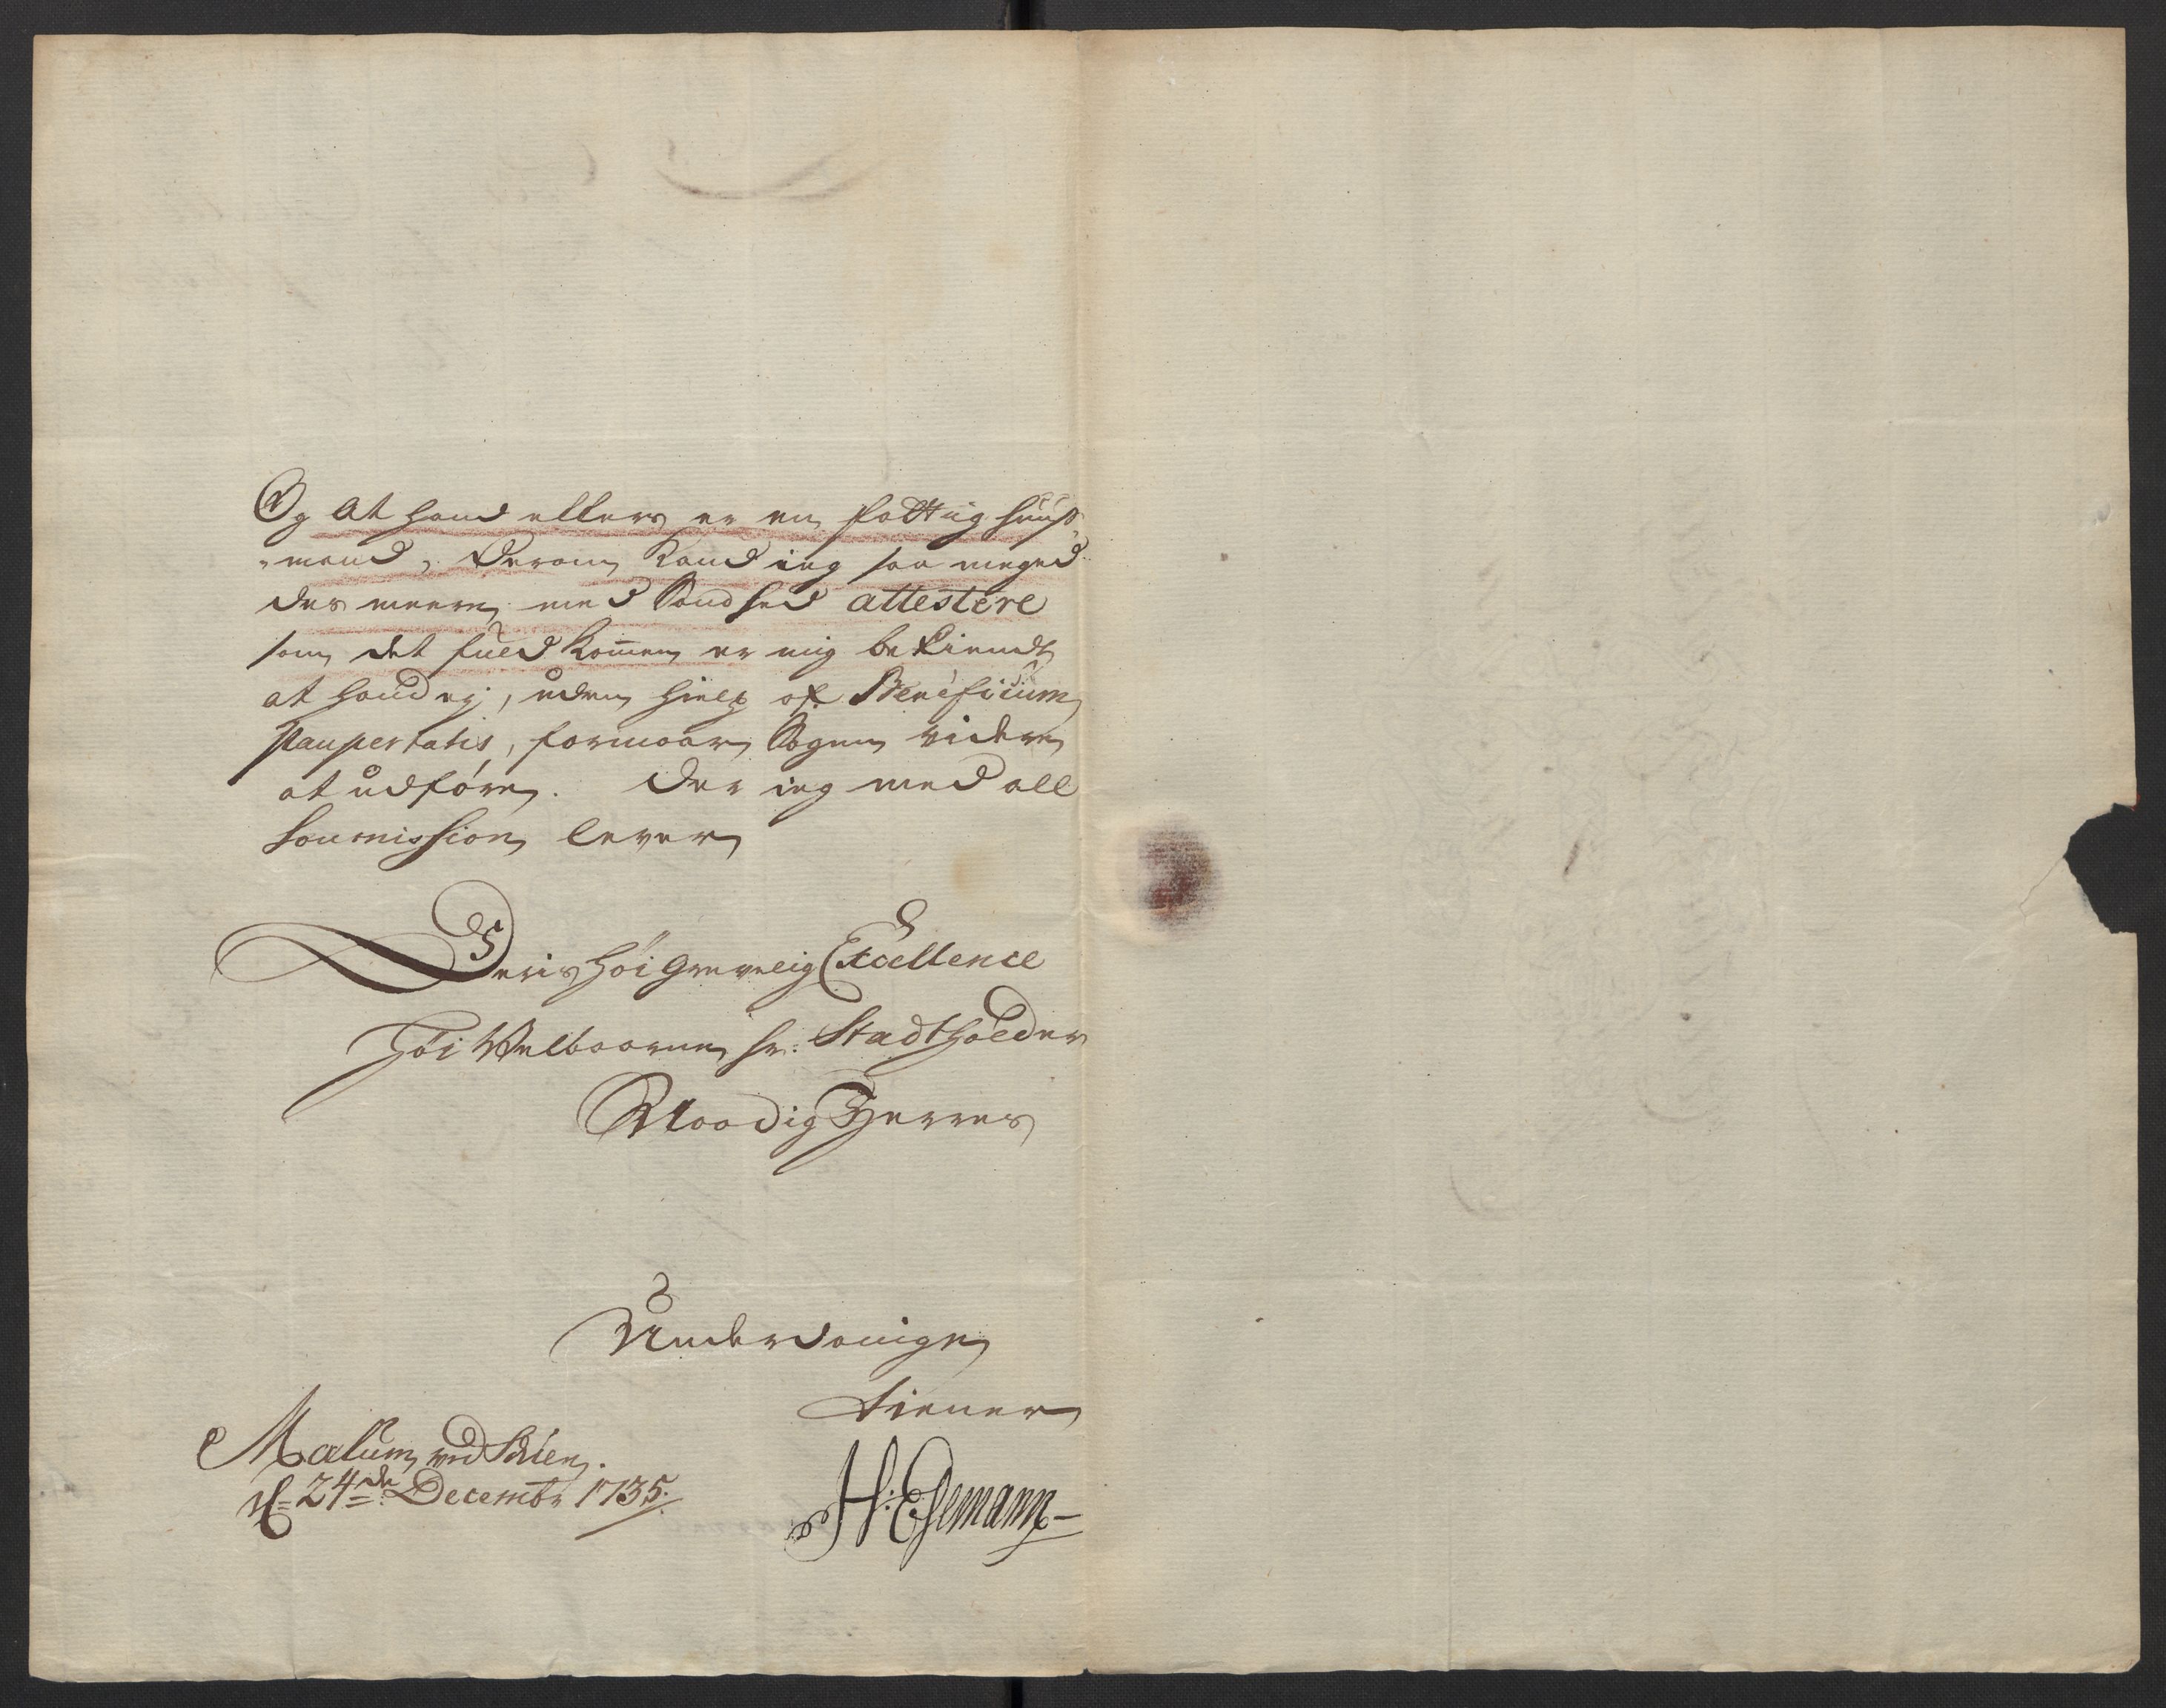 Og at hand ellers er en fattig huus-
-mand, derom kand ieg saa meged
des meere med Sandhed attestere
som det fuldkommen er mig bekiendt
at hand ej, uden hielp af Beneficium
paupertatis, formaar Sagen videre
at udføre. Der ieg med all
soumission lever
Deris høi Grevelig Excellence
høi Velbaarne hr: Stadtholder
Naadig Herres
Underdanige
tiener
Mælum ved Skien.
d= 24de Decembr 1735.
H: Esemann